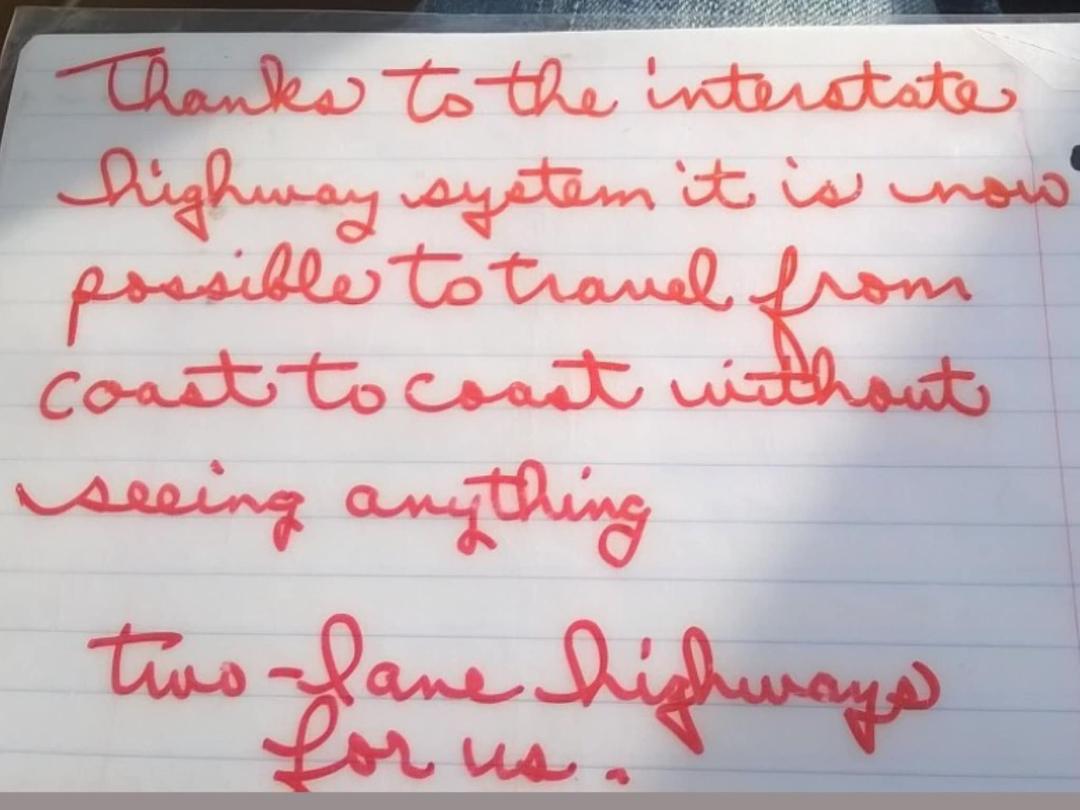 Thanks to the interstate
highway system it is now
possible to travel from
coast to coast without
seeing anything
two-lane highways
for us.